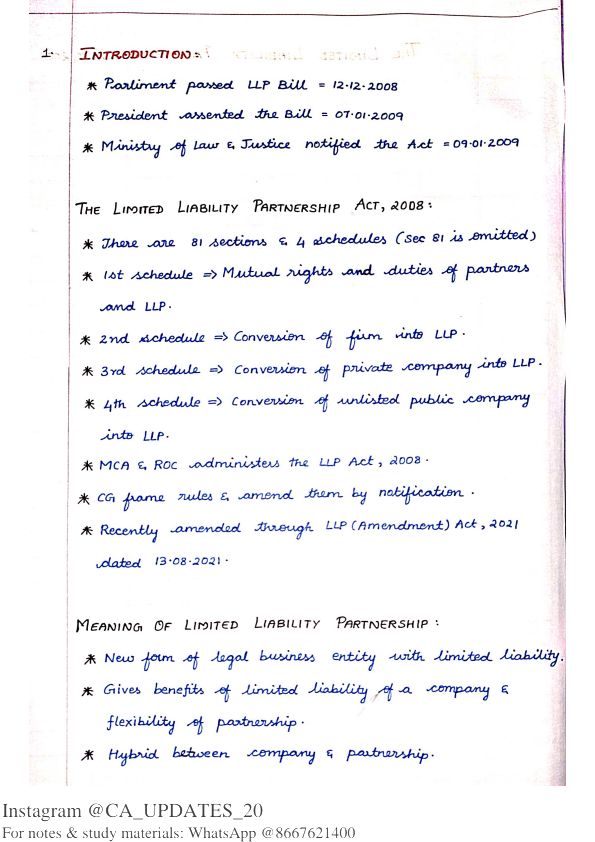 1. INTRODUCTION:
* Parliment passed LLP Bill = 12.12.2008
* President assented the Bill = 07.01.2009
* Ministry of Law & Justice notified the Act = 09.01.2009
THE LIMITED LIABILITY PARTNERSHIP ACT, 2008:
* There are 81 sections & 4 schedules (Sec 81 is omitted)
* 1st schedule => Mutual rights and duties of partners
and LLP.
* 2nd schedule => Conversion of firm into LLP.
* 3rd schedule => Conversion of private company into LLP.
* 4th schedule => Conversion of unlisted public company
into LLP.
* MCA & ROC administers the LLP Act, 2008.
* CG frame rules & amend them by notification.
* Recently amended through LLP (Amendment) Act, 2021
dated 13.08.2021.
MEANING OF LIMITED LIABILITY PARTNERSHIP:
* New form of legal business entity with limited liability.
* Gives benefits of limited liability of a company &
flexibility of partnership.
* Hybrid between company & partnership.
Instagram @CA_UPDATES_20
For notes & study materials: WhatsApp @8667621400